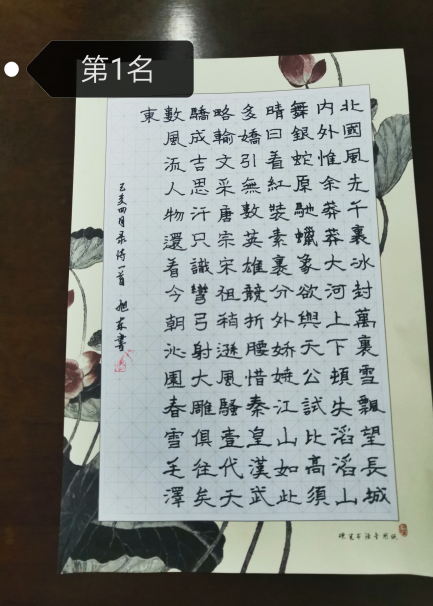 第1名
北國風光千裏冰封萬裏雪飄望長城
内外惟余莽莽大河上下頓失滔滔山
舞銀蛇原馳蠟象欲與天公試比高須
晴日着紅裝素裹分外嬌嬈江山如此
多嬌引無數英雄競折腰惜秦皇漢武
略輸文采唐宗宋祖稍遜風騷壹代天
驕成吉思汗只識彎弓射大雕俱往矣
數風流人物還着今朝沁園春雪毛澤
東
己亥四月录诗一首 旭东書
硬笔书法专用纸